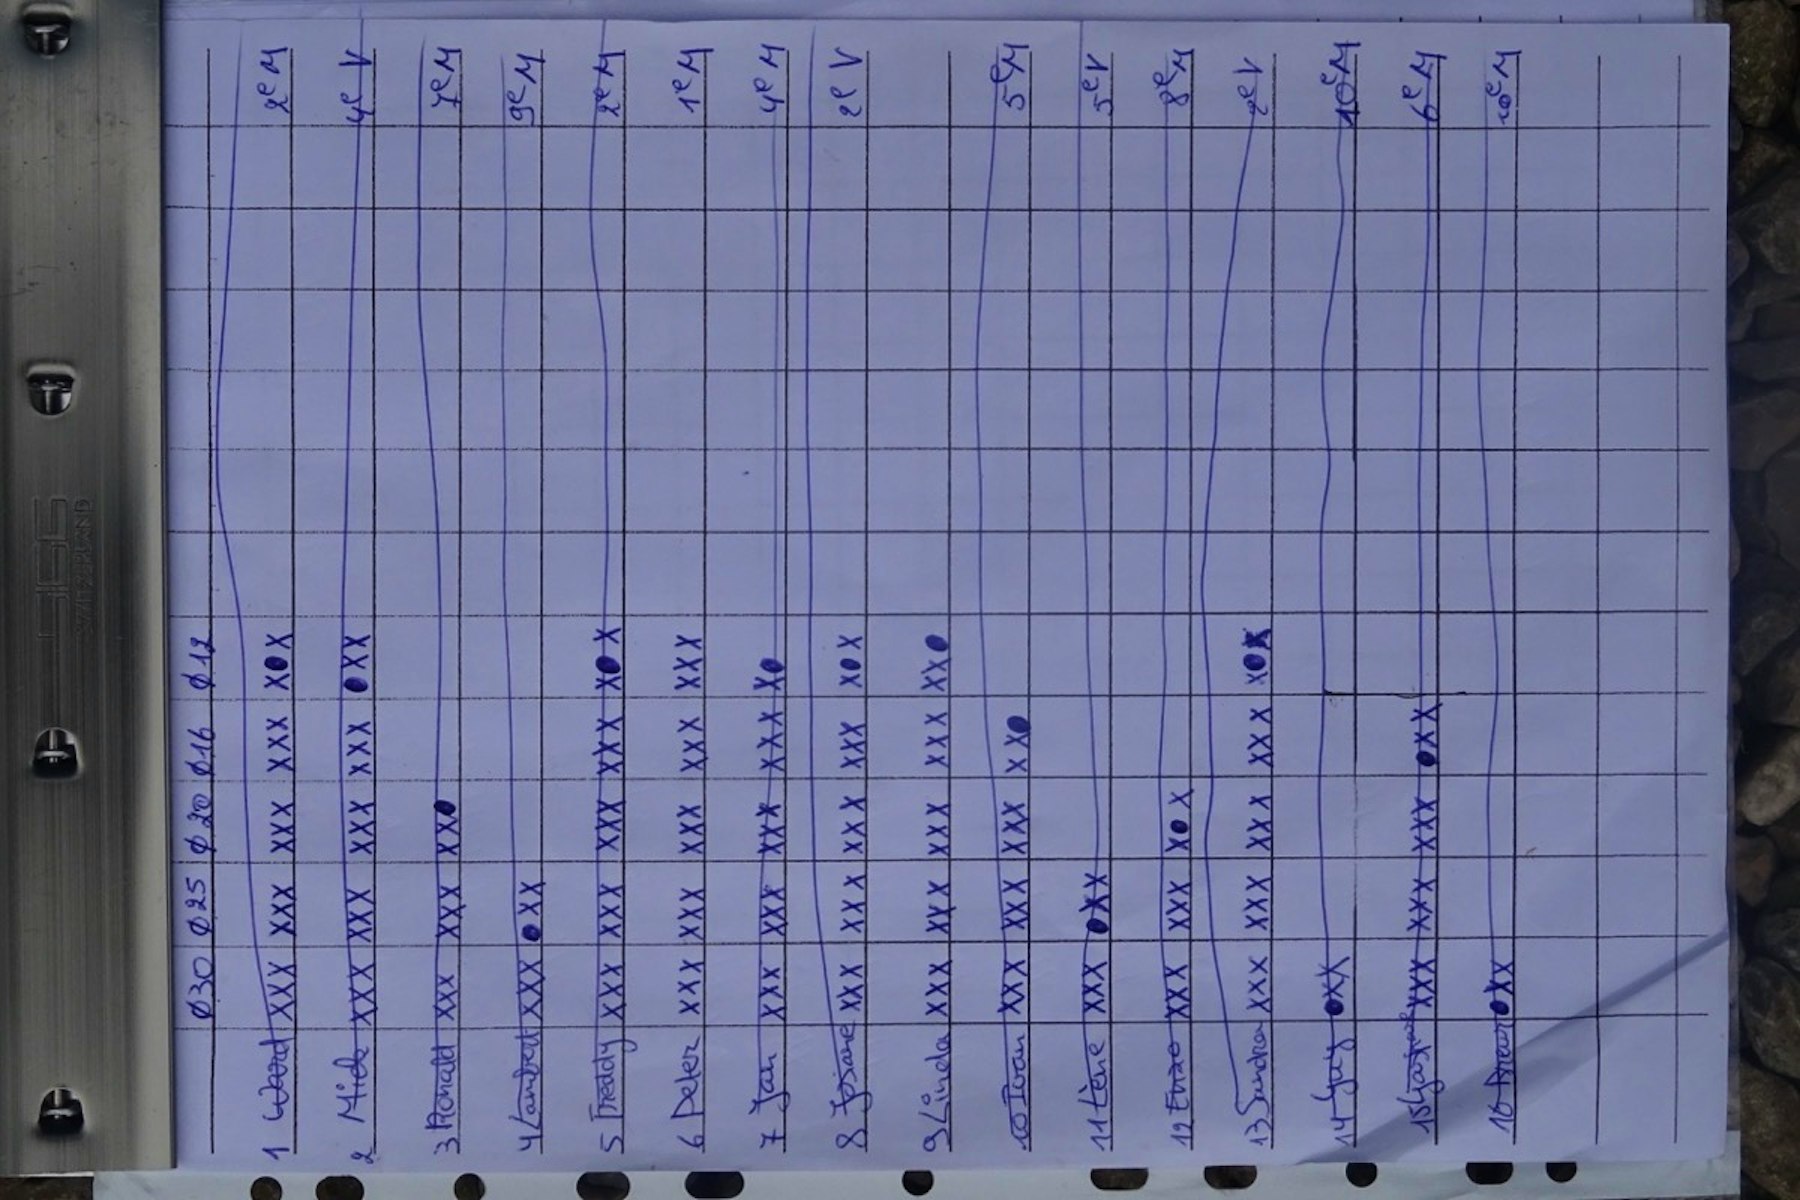 Ø30 Ø25 Ø20 Ø16 Ø12
1 Ward XXX XXX XXX XXX X●X 2e M
2 Mick XXX XXX XXX XXX ●XX 4e V
3 Ronald XXX XXX XX● 7e M
4 Lambert XXX ●XX 9e M
5 Freddy XXX XXX XXX XXX X●X 2e M
6 Peter XXX XXX XXX XXX XXX 1e M
7 Jan XXX XXX XXX XXX X● 4e M
8 Josiane XXX XXX XXX XXX X●X 2e V
9 Linda XXX XXX XXX XXX XX●
10 Ivan XXX XXX XXX XX● 5e M
11 Lène XXX ●XX 5e V
12 XXX XXX X●X 8e M
13 Sandra XXX XXX XXX XXX X●X 2e V
14 Guy ●XX 10e M
15 XXX XXX XXX ●XX 6e M
16 ●XX 10e M
SIGG
SWITZERLAND